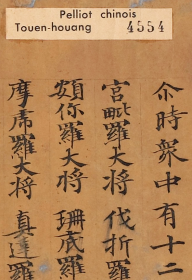 Pelliot chinois
Touen-houang 4554
尒時衆中有十二
宮毗羅大将 伐折羅
頞你羅大将 珊底羅
摩虎羅大将 真達羅